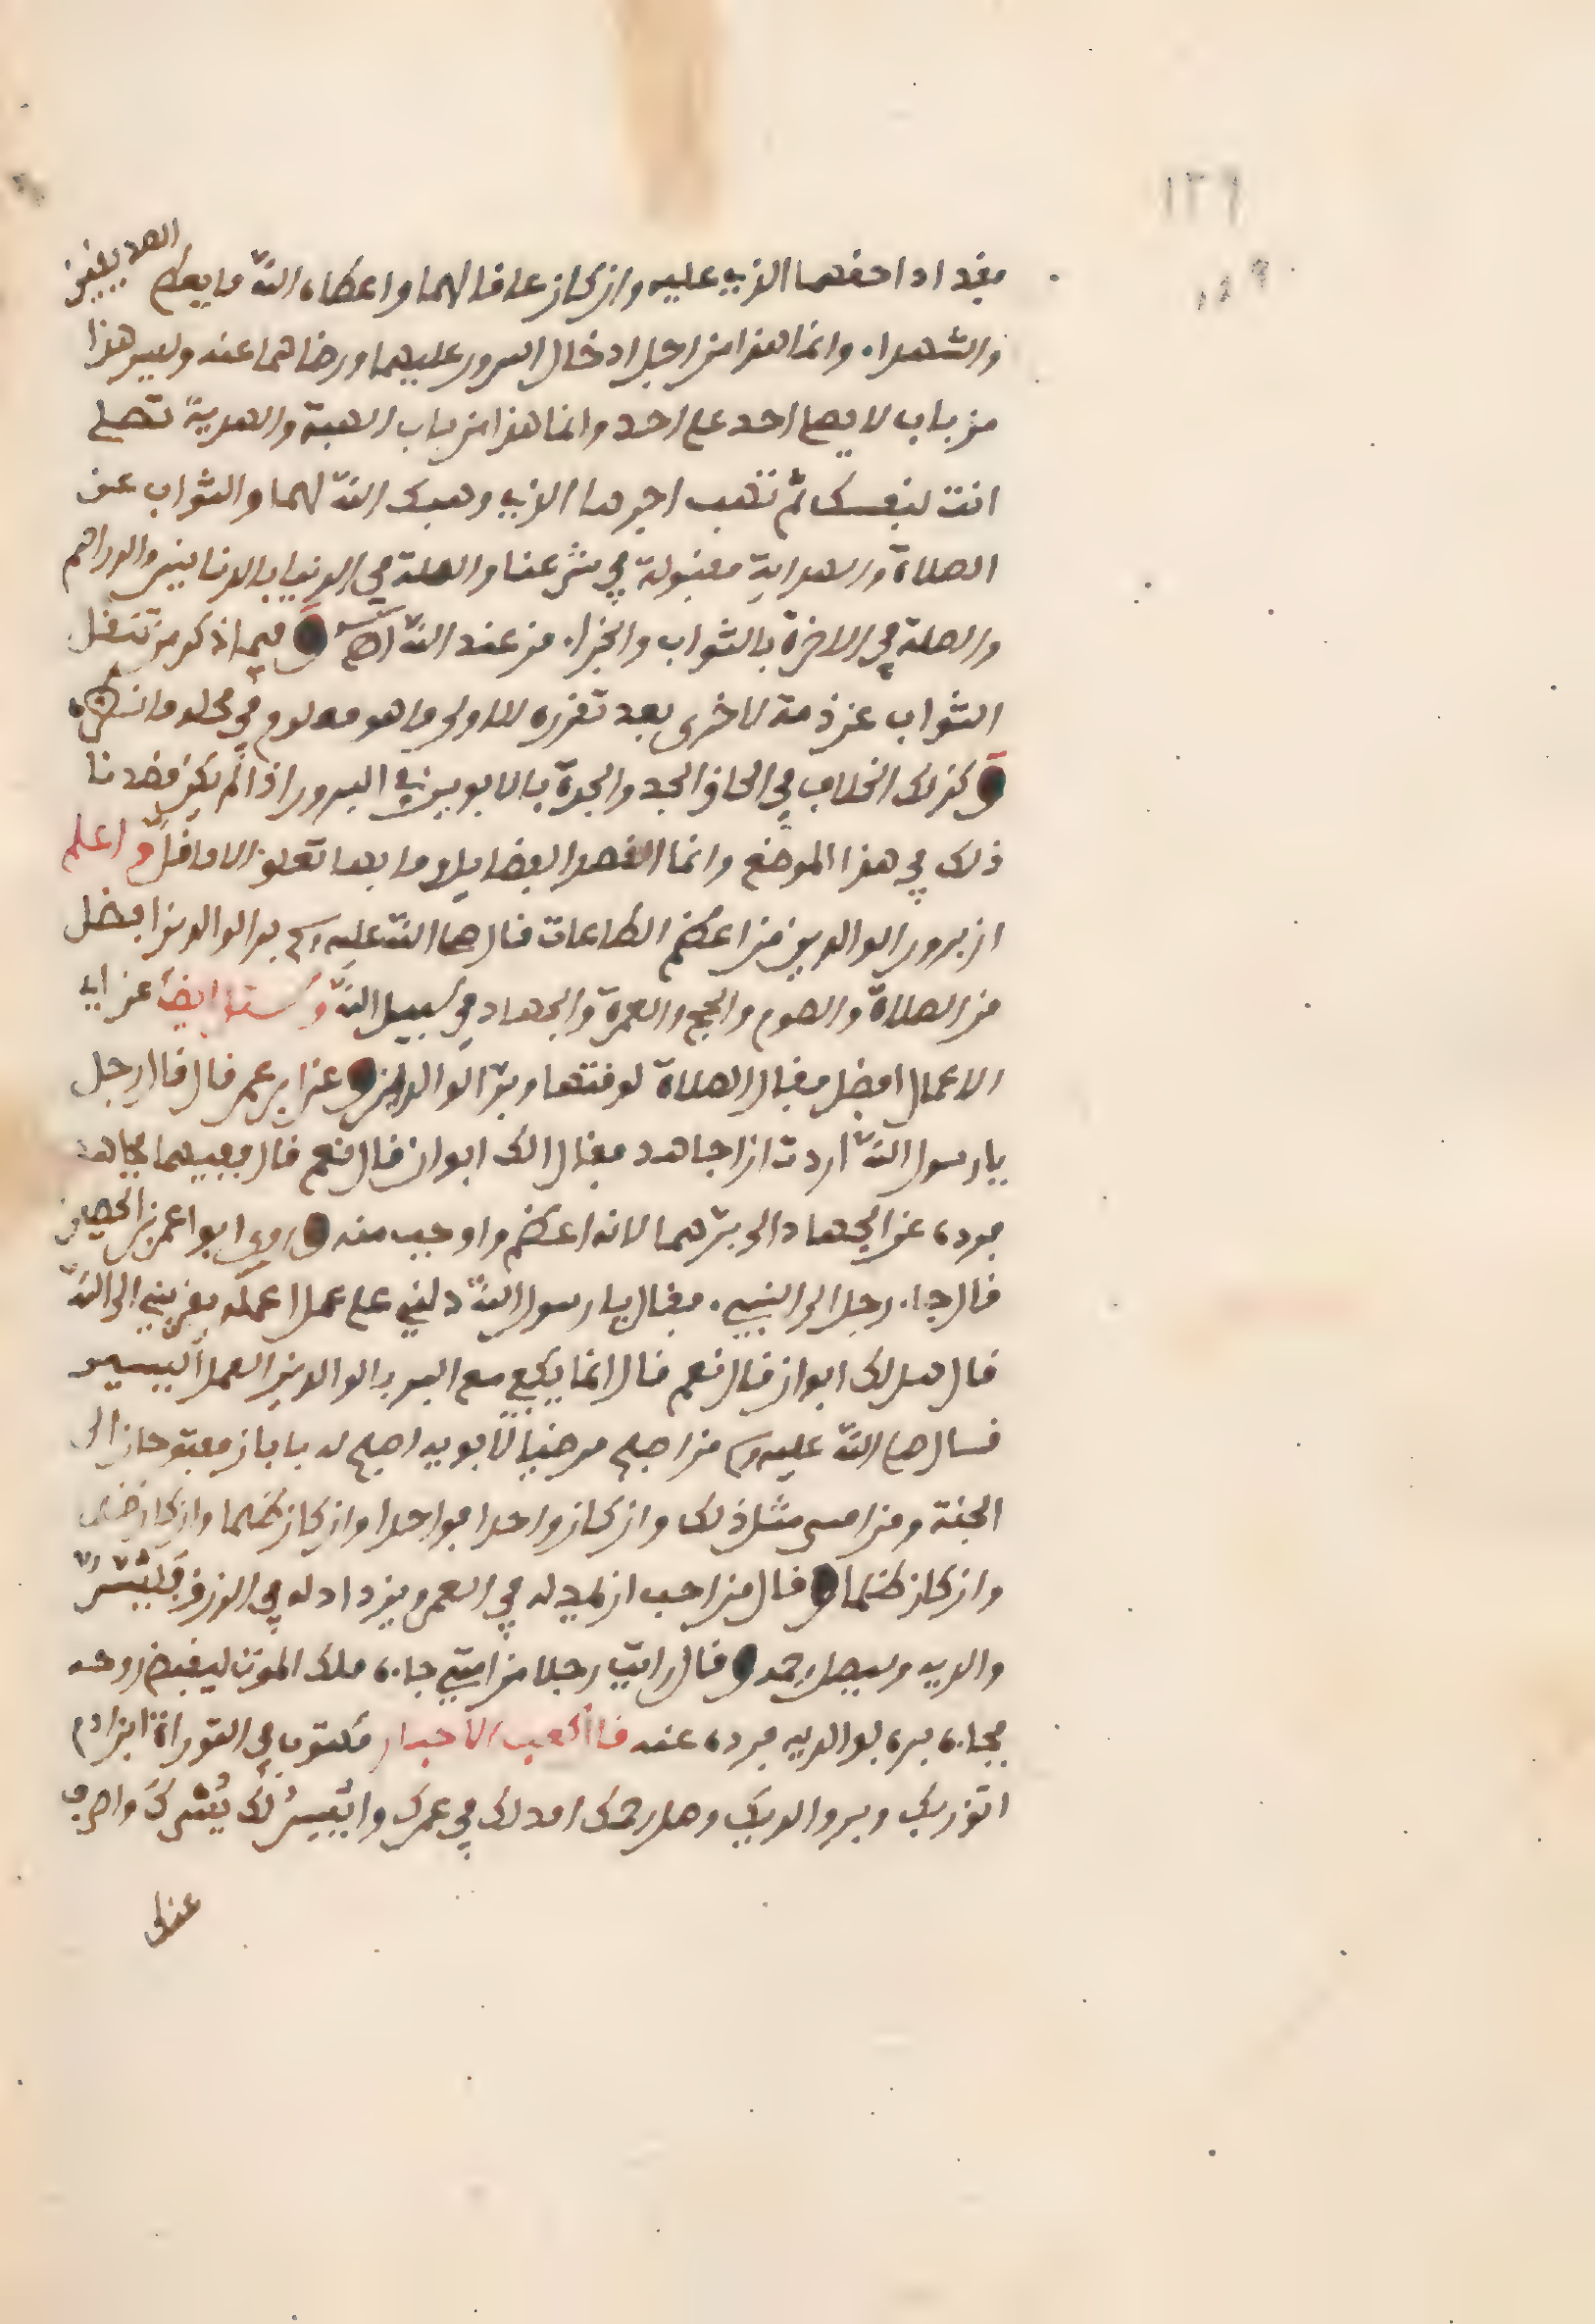 ١٣٩
١٢٩
فقد ادا حقهما الذي عليه وان كان عاقا لهما واعطاه الله ما يعطي الصديقين
والشهداء وانما هذا من اجل ادخال السرور عليهما ورضاهما عنه وليس هذا
من باب لا يصلي احد على احد وانما هذا من باب الهبة والهدية تصلي
انت لنفسك ثم تهب اجرها الذي وهبك الله لهما والثواب عن
الصلاة والهداية مقبولة في شرعنا والصلة في الدنيا بالدنانير والدراهم
والصلة في الاخرة بالثواب والجزاء من عند الله اهـ وفيما ذكر من تنقل
الثواب عن ذمة لاخرى بعد تقرره للاولى ما هو معلوم في محله فانظره
وكذلك الخلاف في الحاق الجد والجدة بالابوين في البرور اذا لم يكن قصدنا
ذلك في هذا الموضع وانما القصد الفضايل وما بها تعلق الا ما قل واعلم
ان برور الوالدين من اعظم الطاعات قال صلى الله عليه وسلم بر الوالدين افضل
من الصلاة والصوم والحج والعمرة والجهاد في سبيل الله وسئل ايضا عن اي
الاعمال افضل فقال الصلاة لوقتها وبر الوالدين وعن ابن عمر قال قال رجل
يا رسول الله اردت ان اجاهد فقال الك ابوان قال نعم قال ففيهما فجاهد
فرده عن الجهاد الى برهما لانه اعظم واوجب منه وروى ابو عمر بن الحصين
قال جاء رجل الى النبي فقال يا رسول الله دلني على عمل اعمله يقربني الى الله
قال هل لك ابوان قال نعم قال انما يكفي مع البر بالوالدين العمل اليسير
قال صلى الله عليه وسلم من اصبح مرضيا لابويه اصبح له بابان مفتوحان الى
الجنة ومن امسى مثل ذلك وان كان واحدا فواحدا وان كان ظلما وان كان ظلما
وان كان ظلما وقال من احب ان يمد له في العمر ويزداد له في الرزق فليبر
والديه وليصل رحمه وقال رايت رجلا من امتي جاءه ملك الموت ليقبض روحه
فجاءه بره بوالديه فرده عنه قال كعب الاحبار مكتوب في التوراة ابن ادم
اتق ربك وبر والديك وصل رحمك امد لك في عمرك وايسر لك يسرك واصرف
عنك